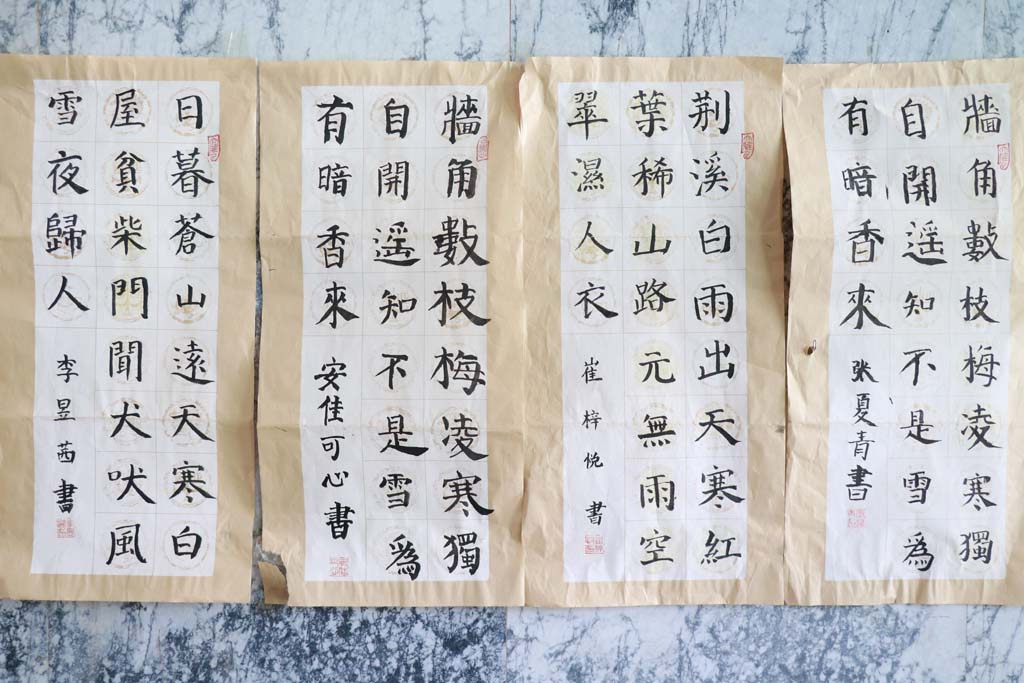 牆角數枝梅凌寒獨
自開遥知不是雪為
有暗香來
张夏青書
荆溪白雨出天寒紅
葉稀山路元無雨空
翠濕人衣
崔梓悦書
牆角數枝梅凌寒獨
自開遥知不是雪為
有暗香來
安佳可心書
日暮蒼山遠天寒白
屋貧柴門聞犬吠風
雪夜歸人
李昱茜書